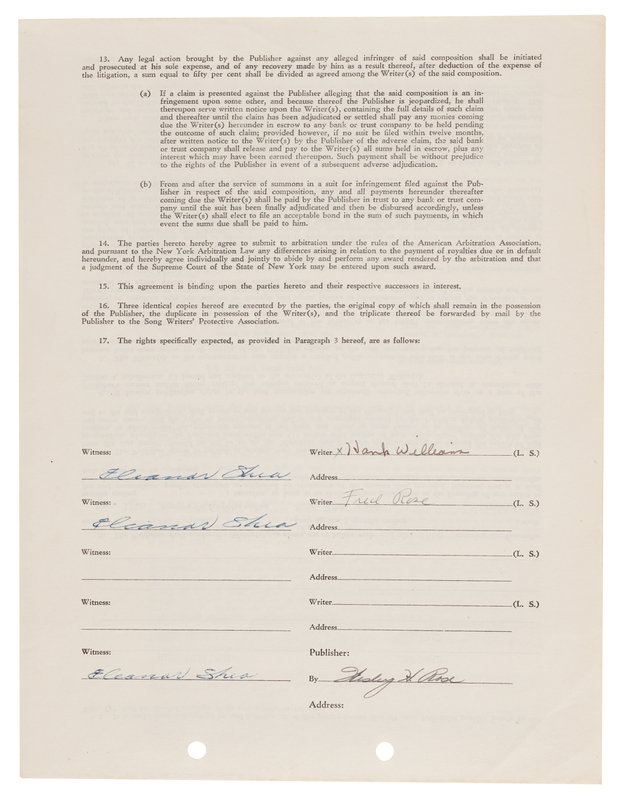 13. Any legal action brought by the Publisher against any alleged infringer of said composition shall be initiated
and prosecuted at his sole expense, and of any recovery made by him as a result thereof, after deduction of the expense of
the litigation, a sum equal to fifty per cent shall be divided as agreed among the Writer(s) of the said composition.
(a) If a claim is presented against the Publisher alleging that the said composition is an in-
fringement upon some other, and because thereof the Publisher is jeopardized, he shall
thereupon serve written notice upon the Writer(s), containing the full details of such claim
and thereafter until the claim has been adjudicated or settled shall pay any monies coming
due the Writer(s) hereunder in escrow to any bank or trust company to be held pending
the outcome of such claim; provided however, if no suit be filed within twelve months,
after written notice to the Writer(s) by the Publisher of the adverse claim, the said bank
or trust company shall release and pay to the Writer(s) all sums held in escrow, plus any
interest which may have been earned thereupon. Such payment shall be without prejudice
to the rights of the Publisher in event of a subsequent adverse adjudication.
(b) From and after the service of summons in a suit for infringement filed against the Pub-
lisher in respect of the said composition, any and all payments hereunder thereafter
coming due the Writer(s) shall be paid by the Publisher in trust to any bank or trust com-
pany until the suit has been finally adjudicated and then be disbursed accordingly, unless
the Writer(s) shall elect to file an acceptable bond in the sum of such payments, in which
event the sums due shall be paid to him.
14. The parties hereto hereby agree to submit to arbitration under the rules of the American Arbitration Association,
and pursuant to the New York Arbitration Law any differences arising in relation to the payment of royalties due or in default
hereunder, and hereby agree individually and jointly to abide by and perform any award rendered by the arbitration and that
a judgment of the Supreme Court of the State of New York may be entered upon such award.
15. This agreement is binding upon the parties hereto and their respective successors in interest.
16. Three identical copies hereof are executed by the parties, the original copy of which shall remain in the possession
of the Publisher, the duplicate in possession of the Writer(s), and the triplicate thereof be forwarded by mail by the
Publisher to the Song Writers' Protective Association.
17. The rights specifically expected, as provided in Paragraph 3 hereof, are as follows:
Witness: Writer x Hank Williams (L. S.)
Eleanor Shea Address
Witness: Writer Fred Rose (L. S.)
Eleanor Shea Address
Witness: Writer (L. S.)
Address
Witness: Writer (L. S.)
Address
Witness: Publisher:
Eleanor Shea By Wesley H Rose
Address: